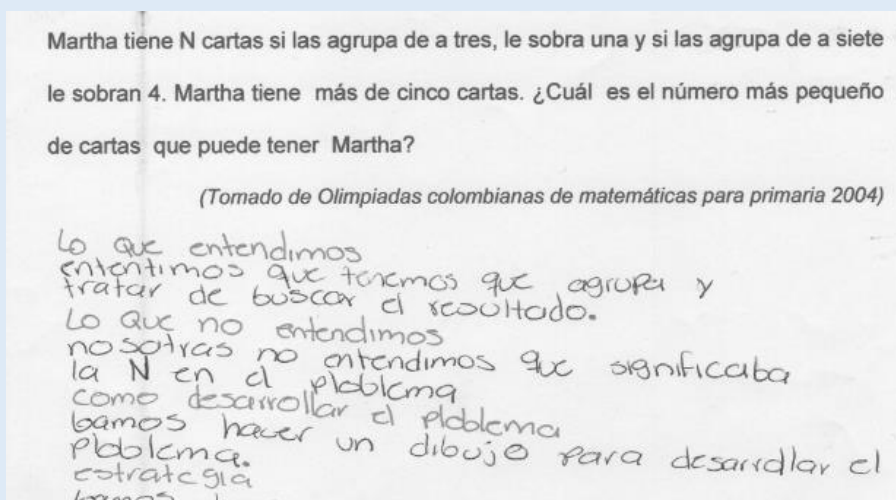 Martha tiene N cartas si las agrupa de a tres, le sobra una y si las agrupa de a siete
le sobran 4. Martha tiene más de cinco cartas. ¿Cuál es el número más pequeño
de cartas que puede tener Martha?
(Tomado de Olimpiadas colombianas de matemáticas para primaria 2004)
Lo que entendimos
ententimos que tenemos que agrupar y
tratar de buscar el resoltado.
Lo que no entendimos
nosotras no entendimos que significaba
la N en el ploblema
como desarrollar el ploblema
bamos hacer un dibujo para desarrollar el
ploblema.
estrategia
bamos